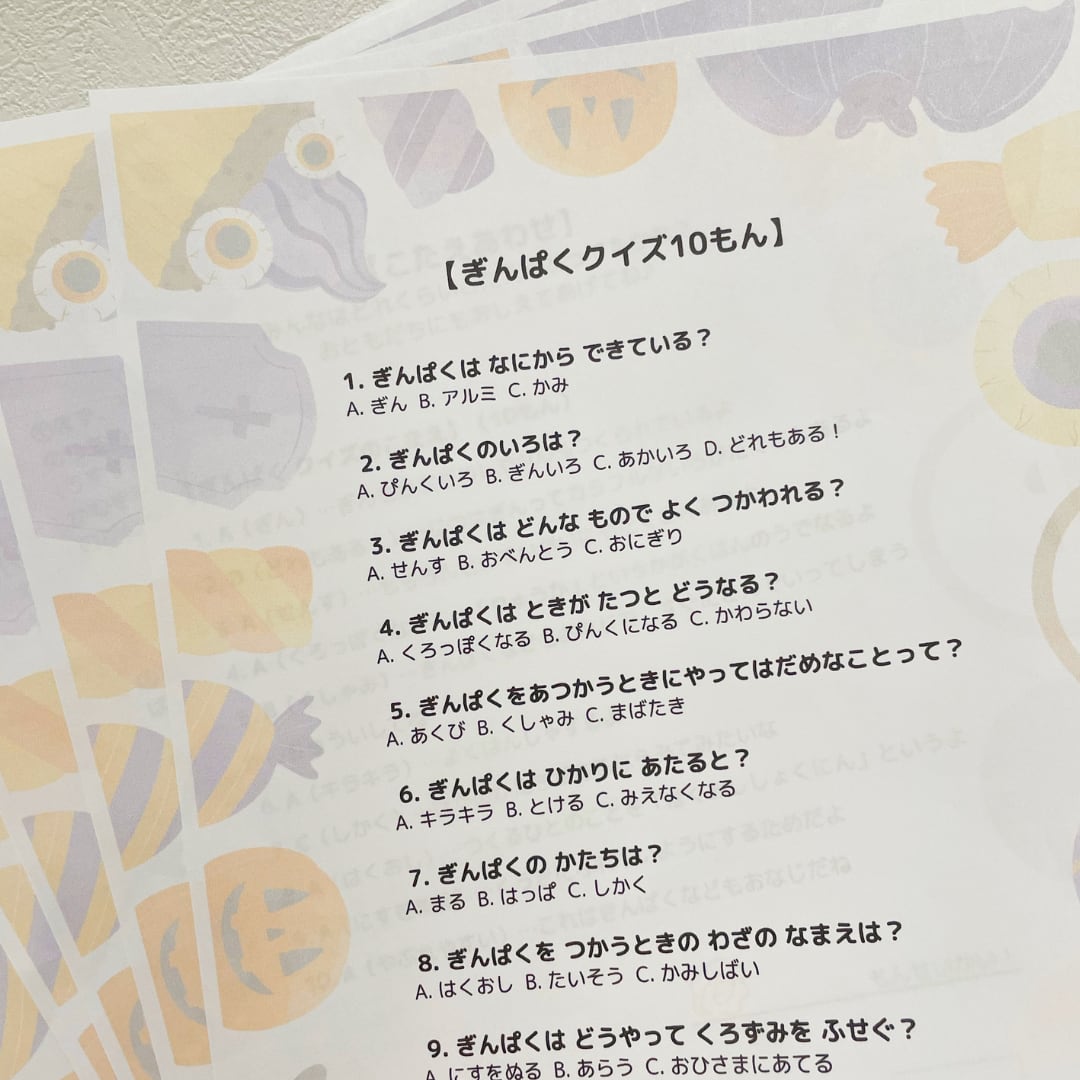 【ぎんぱくクイズ10もん】
1. ぎんぱくは なにから できている？
A. ぎん B. アルミ C. かみ
2. ぎんぱくのいろは？
A. ぴんくいろ B. ぎんいろ C. あかいろ D. どれもある！
3. ぎんぱくは どんな もので よく つかわれる？
A. せんす B. おべんとう C. おにぎり
4. ぎんぱくは ときが たつと どうなる？
A. くろっぽくなる B. ぴんくになる C. かわらない
5. ぎんぱくをあつかうときにやってはだめなことって？
A. あくび B. くしゃみ C. まばたき
6. ぎんぱくは ひかりに あたると？
A. キラキラ B. とける C. みえなくなる
7. ぎんぱくの かたちは？
A. まる B. はっぱ C. しかく
8. ぎんぱくを つかうときの わざの なまえは？
A. はくおし B. たいそう C. かみしばい
9. ぎんぱくは どうやって くろずみを ふせぐ？
A. にすをぬる B. あらう C. おひさまにあてる